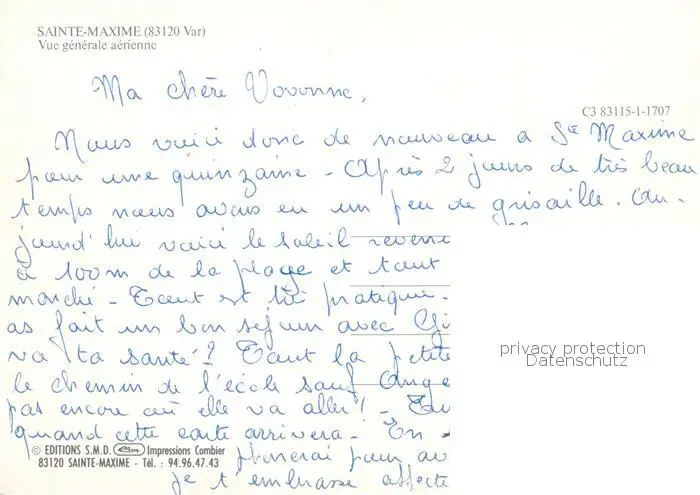 SAINTE-MAXIME (83120 Var)
Vue générale aérienne
Ma chère Vovonne,
C3 83115-1-1707
Nous voici donc de nouveau a Ste Maxime
pour une quinzaine - Après 2 jours de très beau
temps nous avons eu un peu de grisaille. Au-
jourd'hui voici le soleil revenu
à 100m de la plage et tout
marché - Tout est très pratique.
as fait un bon séjour avec Gi
va ta santé? Tout la petite
le chemin de l'école sauf Ange
pas encore où elle va aller! -
quand cette carte arrivera - En
privacy protection
Datenschutz
© EDITIONS S.M.D. Impressions Combier
83120 SAINTE-MAXIME - Tél. : 94.96.47.43
phonerai pour av
je t'embrasse affecte